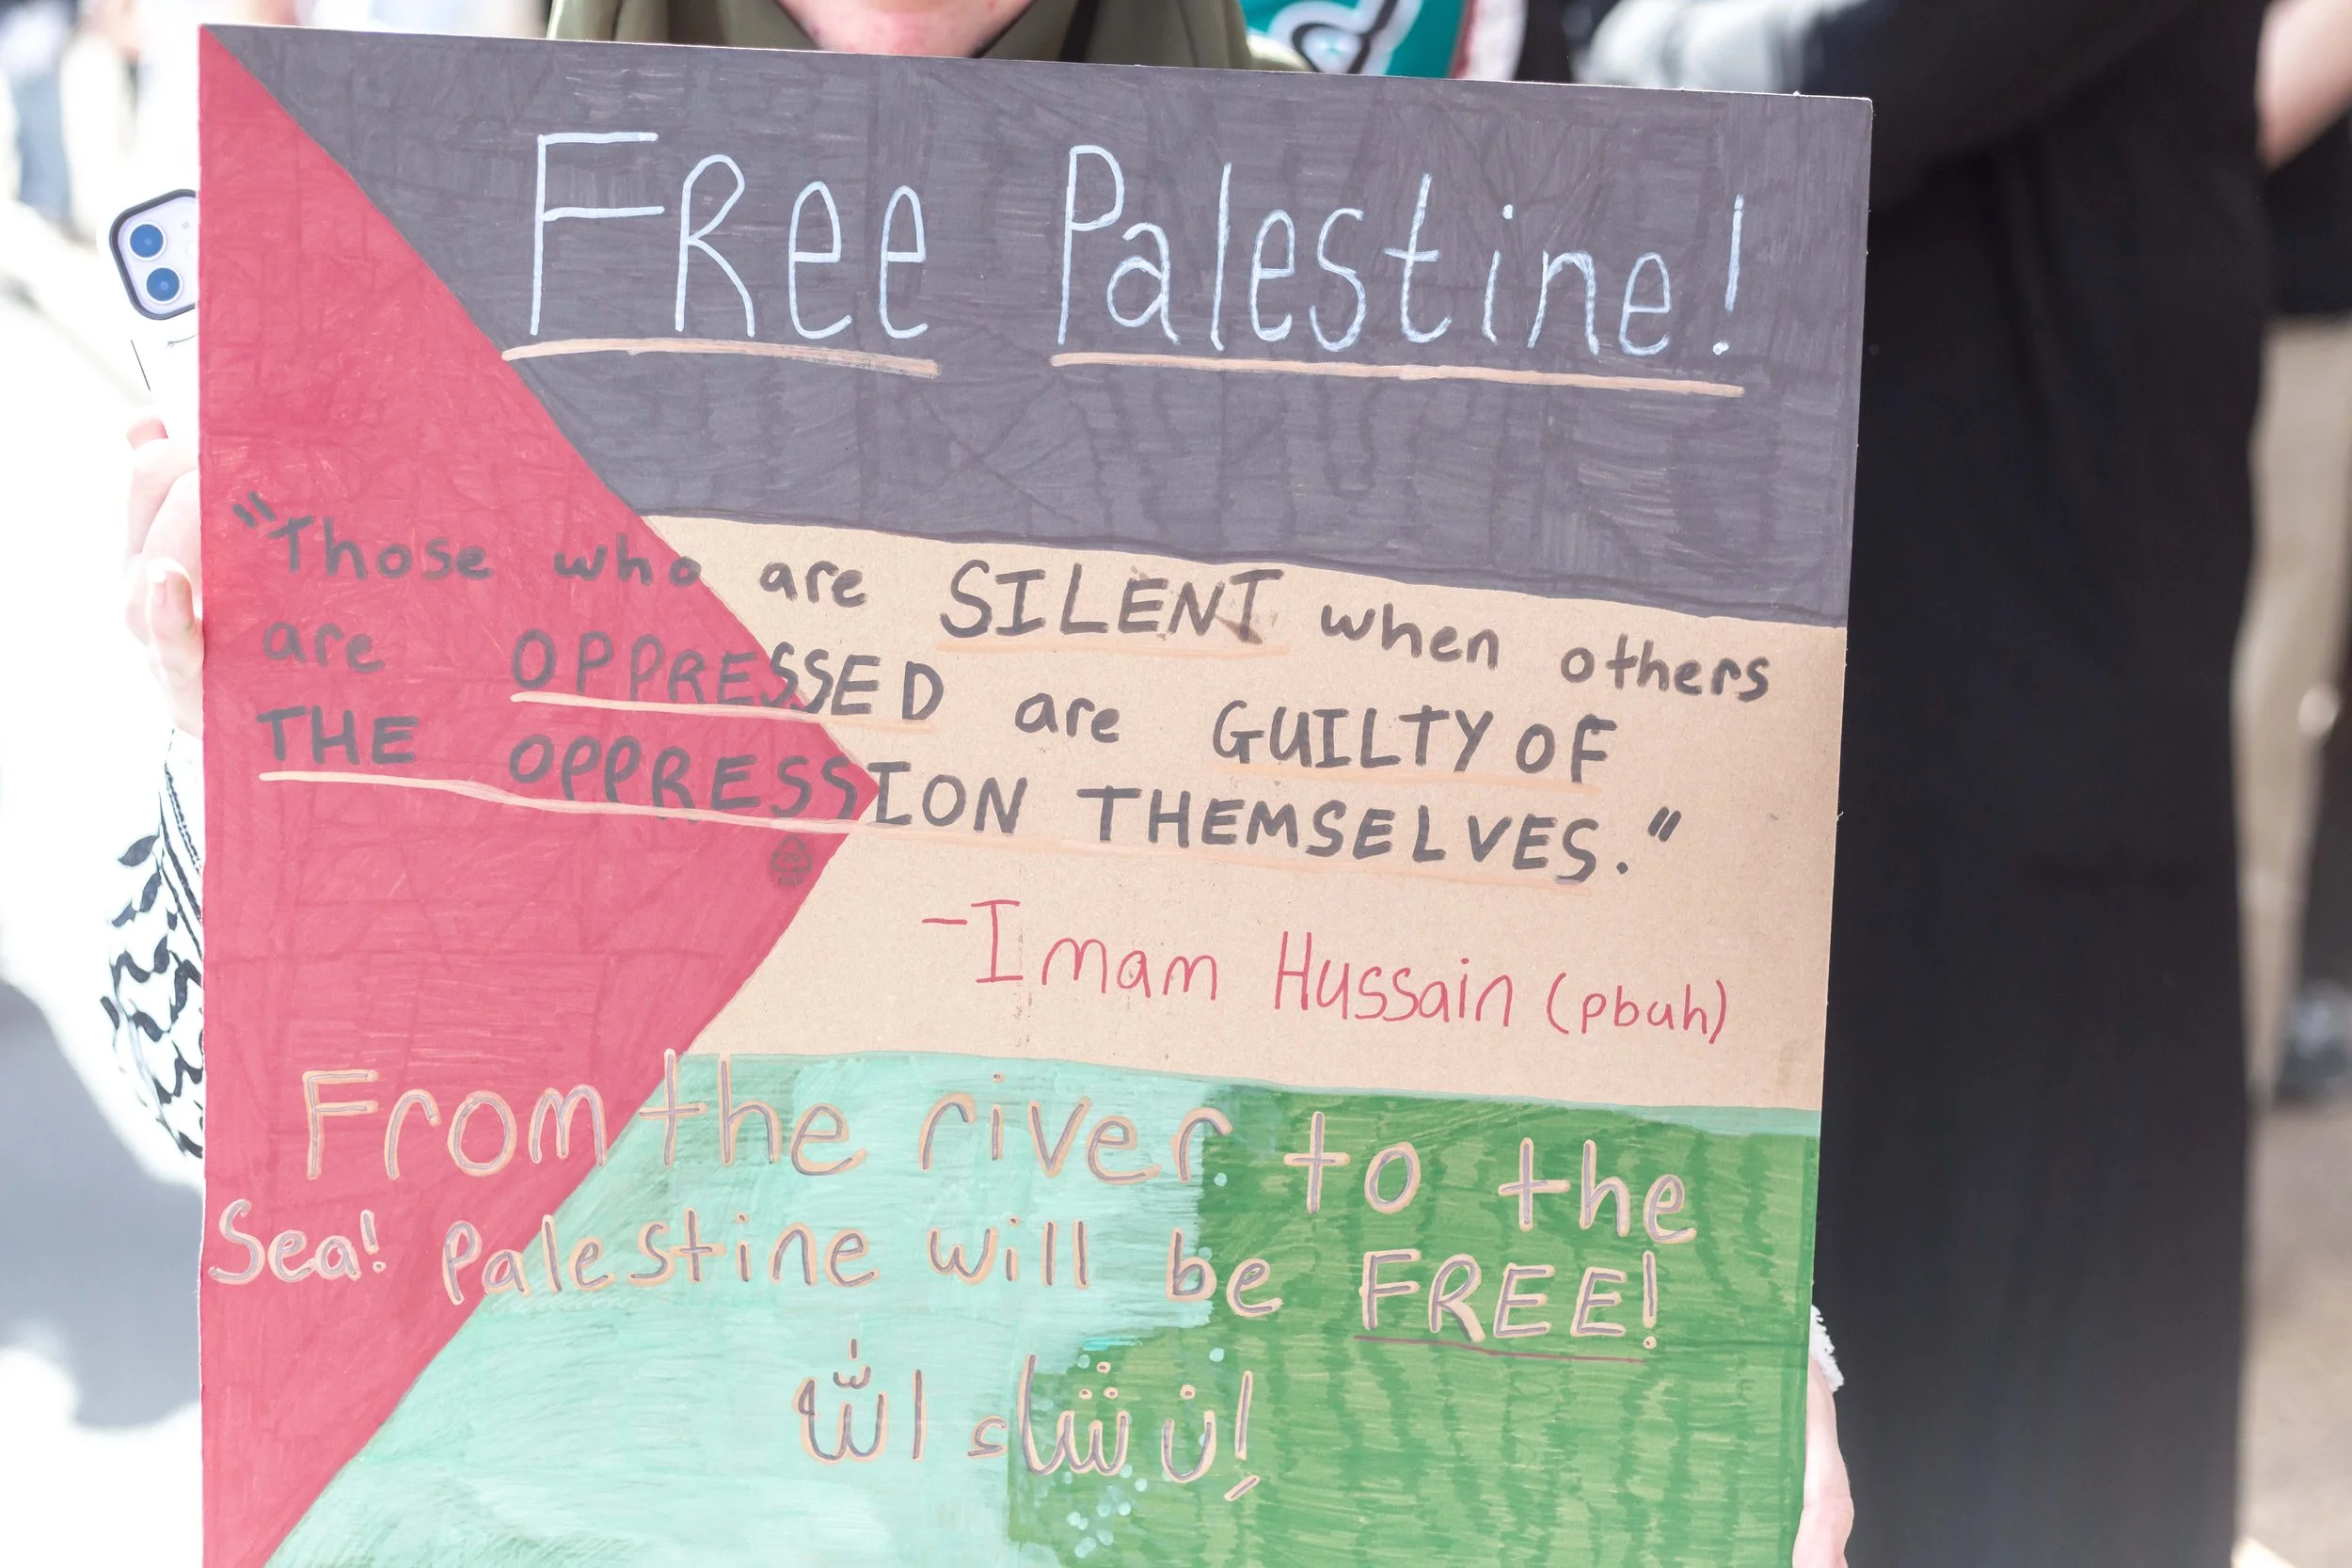 FRee Palestine!
"Those who are SILENT when others
are OPPRESSED are GUILTY OF
THE OPPRESSION THEMSELVES."
-Imam Hussain (pbuh)
From the river to the
Sea! Palestine will be FREE!
إن شاء الله